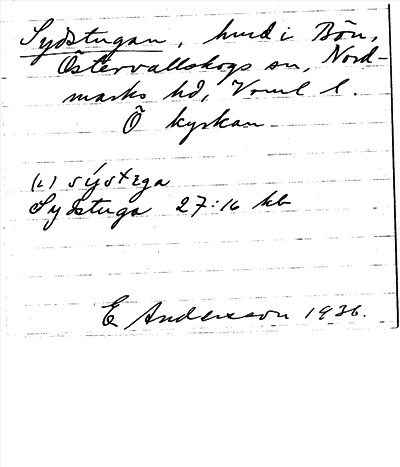 Sydstugan, hmd i Bön,
Östervallskogs sn, Nord-
marks hd, Vrml l.
Ö kyrkan
(i) sýstᵼga
Sydstuga 27:16 kb
E Andersson 1936.